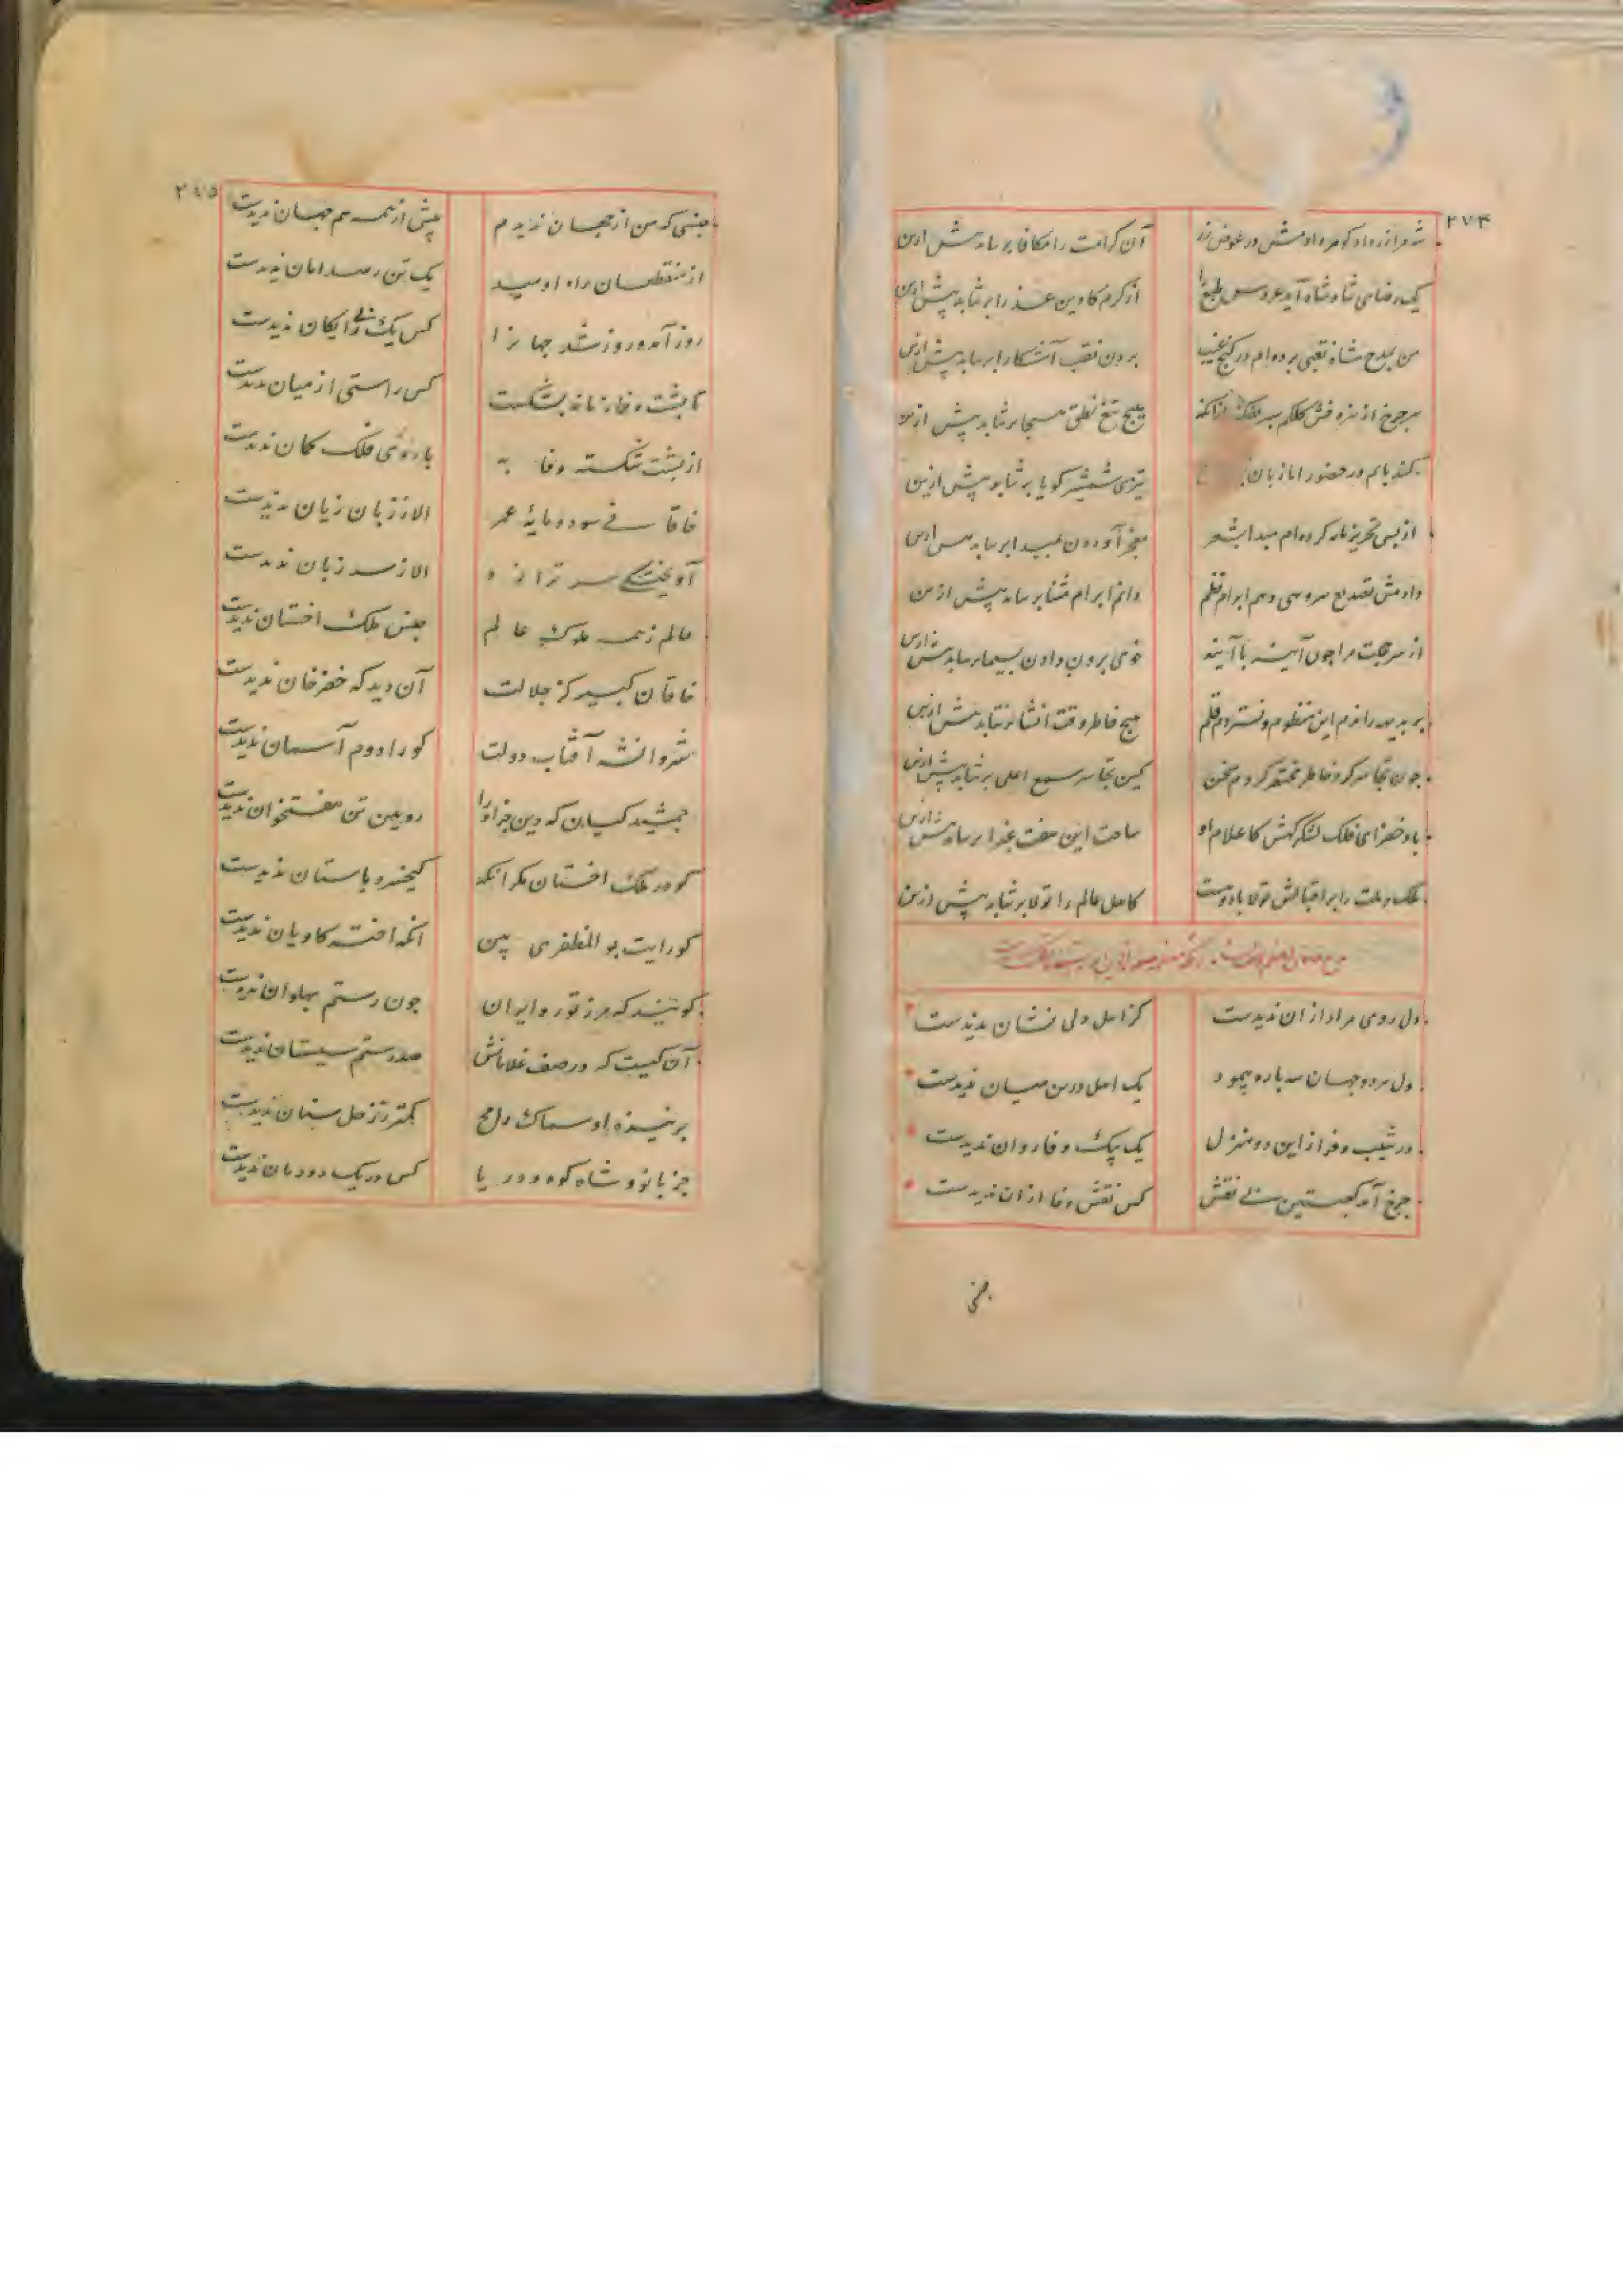 ۲۷۴
شه مرا زر داد گوهر دادمش در عوض زر آن کرامت را مکافا بر نتابد بیش ازین
یک رضای شاه شاه آمد عروس طبع را از کرم کابین عذرا بر نتابد بیش ازین
من بمدح شاه نقبی برده‌ام در گنج غیب بردن نقب آشکارا بر نتابد بیش ازین
هیچ تیغ نطق مسیحا بر نتابد بیش ازین
کند پایم در حضور اما زبان تیزی شمشیر گویا بر نتابد بیش ازین
از پس تحریر نامه کرده‌ام مبدا بشعر معجز آوردن بمبدا بر نتابد بیش ازین
دادمش تصدیع نثر و می‌دهم ابرام نظم دانم ابرام مثنا بر نتابد بیش ازین
از سر خجلت مرا چون آینه با آینه خوی برون دادن بسیما بر نتابد بیش ازین
بر بدیهه راندم این منظوم و نستردم قلم هیچ خاطر وقت انشا بر نتابد بیش ازین
چون تجاسر کرد خاطر مختصر کردم سخن کین تجاسر سمع اعلی بر نتابد بیش ازین
باد خضرای فلک لشکرگهش کاعلام او ساحت این هفت غبرا بر نتابد بیش ازین
ملک و ملت را بر اقبالش تولا باد و بس کاهل عالم را تولا بر نتابد بیش ازین
دل روی مراد از آن ندیدست کز اهل دلی نشان ندیدست
دل هر دو جهان سه باره پیمود یک اهل درین میان ندیدست
در شیب و فراز این دو منزل یک پیک وفا روان ندیدست
چرخ آمد کعبتین بی نقش کس نقش وفا ازان ندیدست
جنسی
۲۷۵
جنسی که من از جهان ندیدم پیش از همه هم جهان ندیدست
از منقطعان راه امید یک تن رصد امان ندیدست
روز آمد و روز شد جهانرا کس یک پی رایگان ندیدست
تا پشت وفا زمانه بشکست کس راستی از میان ندیدست
از پشت شکسته وفا به بازوی فلک کمان ندیدست
خاقانی سود و مایه عمر الا ز زبان زیان ندیدست
آویختگی سر ترازو الا ز سر زبان ندیدست
عالم ز همه ملوک عالم جنس ملک اخستان ندیدست
خاقان کبیر کز جلالت آن دید که خضرخان ندیدست
شروانشه آفتاب دولت کو را دوم آسمان ندیدست
جمشید کیان که دین جز او را رویین تن هفتخوان ندیدست
کو در ملک اخستان مگر آنکه کیخسرو باستان ندیدست
کو رایت بو المظفری بین آنکه اختر کاویان ندیدست
گویند که مرز تور و ایران چون رستم پهلوان ندیدست
آن کیست که در صف غلامانش صد رستم سیستان ندیدست
بر نیزه او سماک رامح کمتر ز زحل سنان ندیدست
جز بانو و شاه کوه و دریا کس در یک دودمان ندیدست